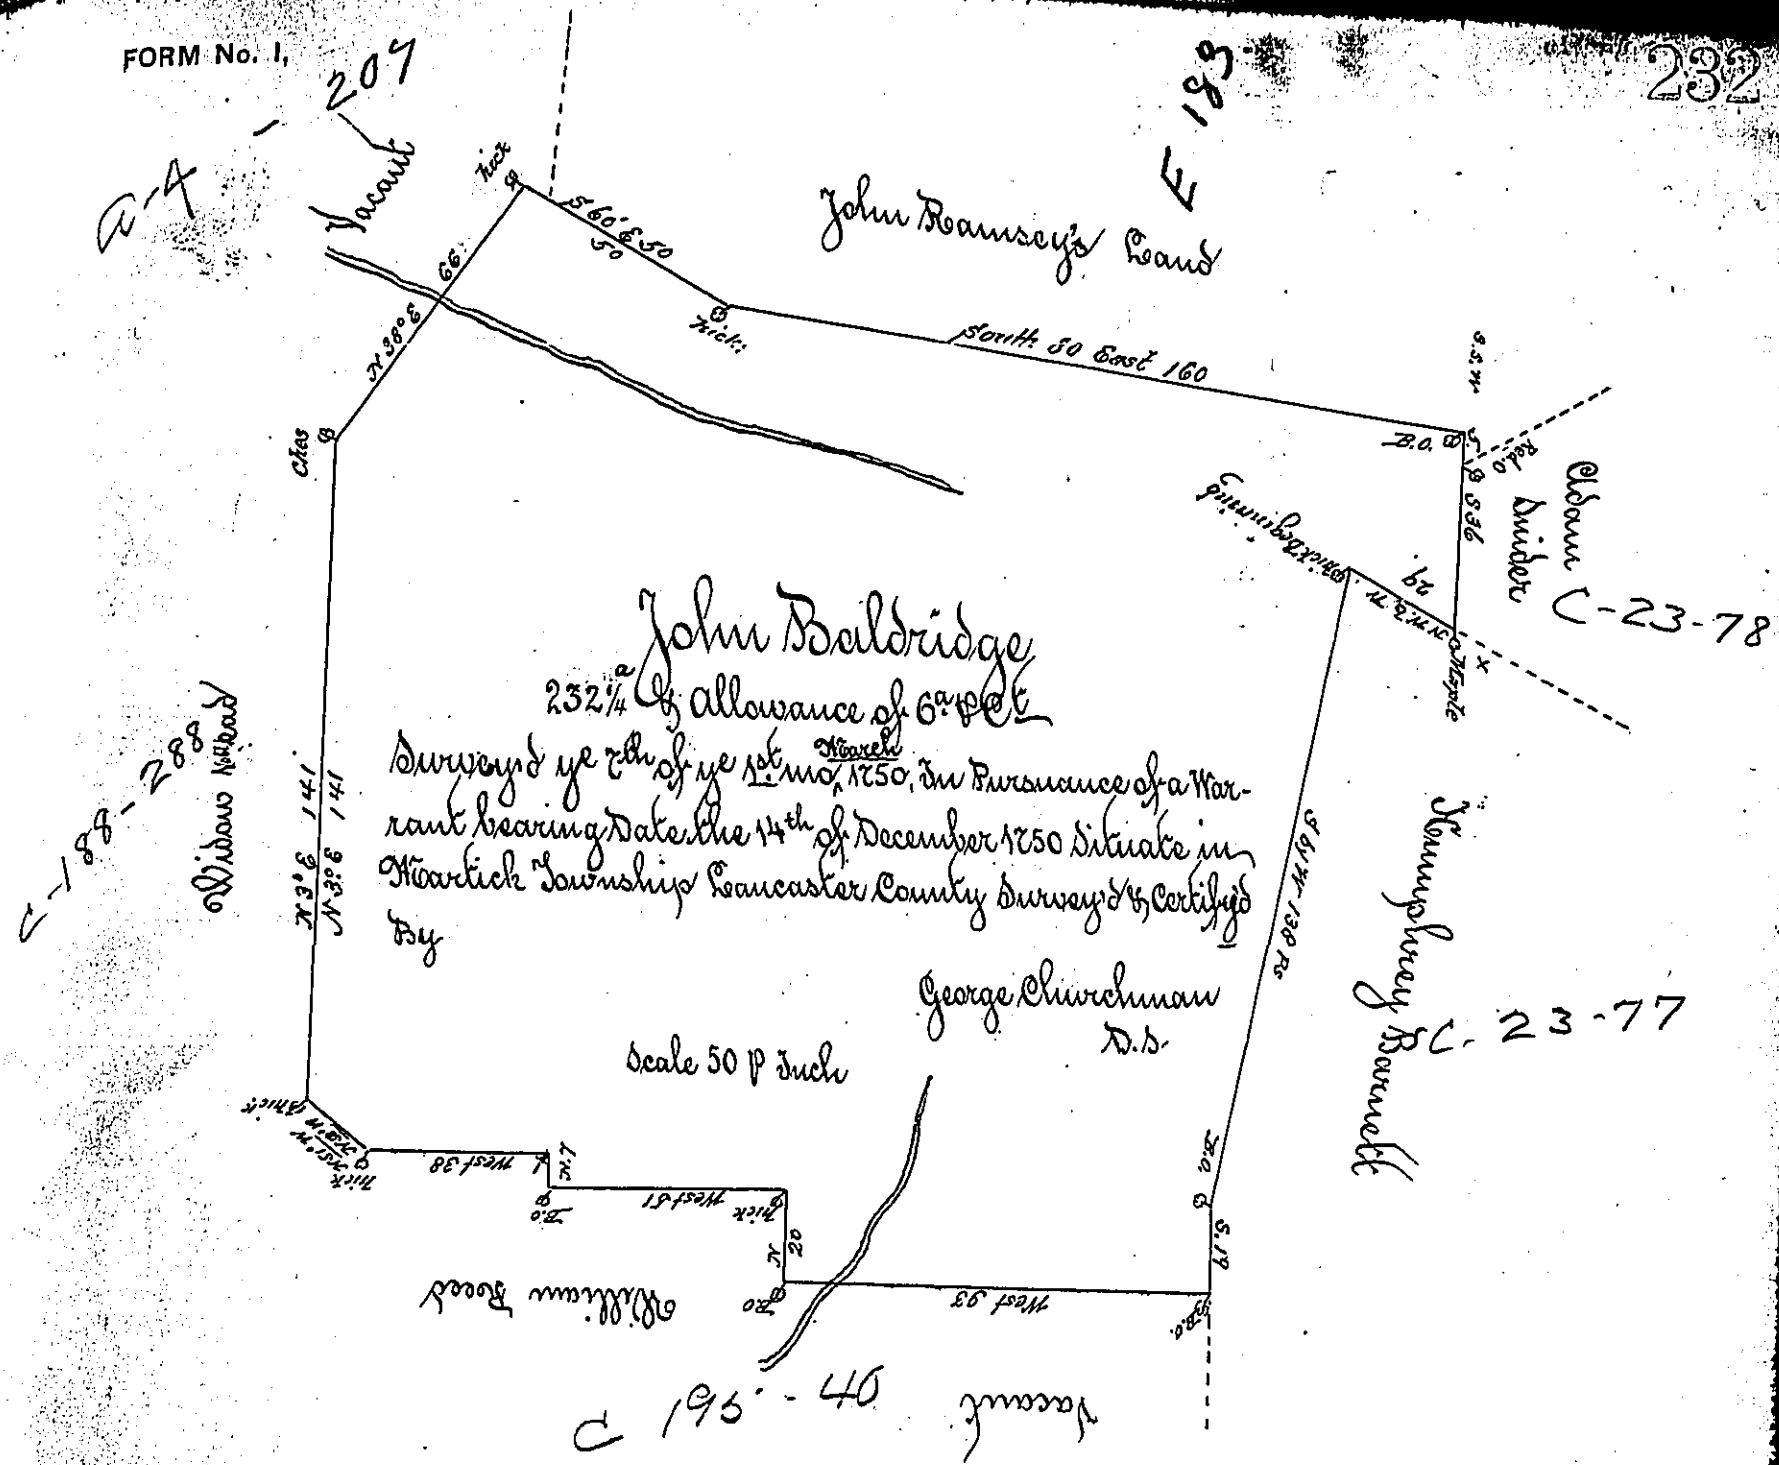 FORM No. 1,
232
a-4 - 207
E 183
Vacant
hick
S 60° E 50
50
John Ramsey's Land
hick:
South 80 East 160
N 38° E 66
Chos
S.S.W
B.O.
S.
Red.O
S 36
Adam
Snider
C-23-78
hick beginning
29
Maple
X
John Baldridge
232 1/4 a & Allowance of 6 a. ⅌ Ct
Survey'd ye 7th of ye 1st mo, March 1750, In Pursuance of a War-
rant bearing Date the 14th of December 1750 Situate in
Martick Township Lancaster County Survey'd & Certify'd
By
George Churchman
D.S.
Scale 50 P Inch
N 3° E 141
N 3° E 141
C-188-288
S by W 138 Ps
Humphrey Barnett
C-23-77
hick
N 51° W
hick
West 38
B.O
West 51
hick
N 20
BO
West 93
B.O.
S. 19
B.O.
William Reed
C 195 - 40
Vacant